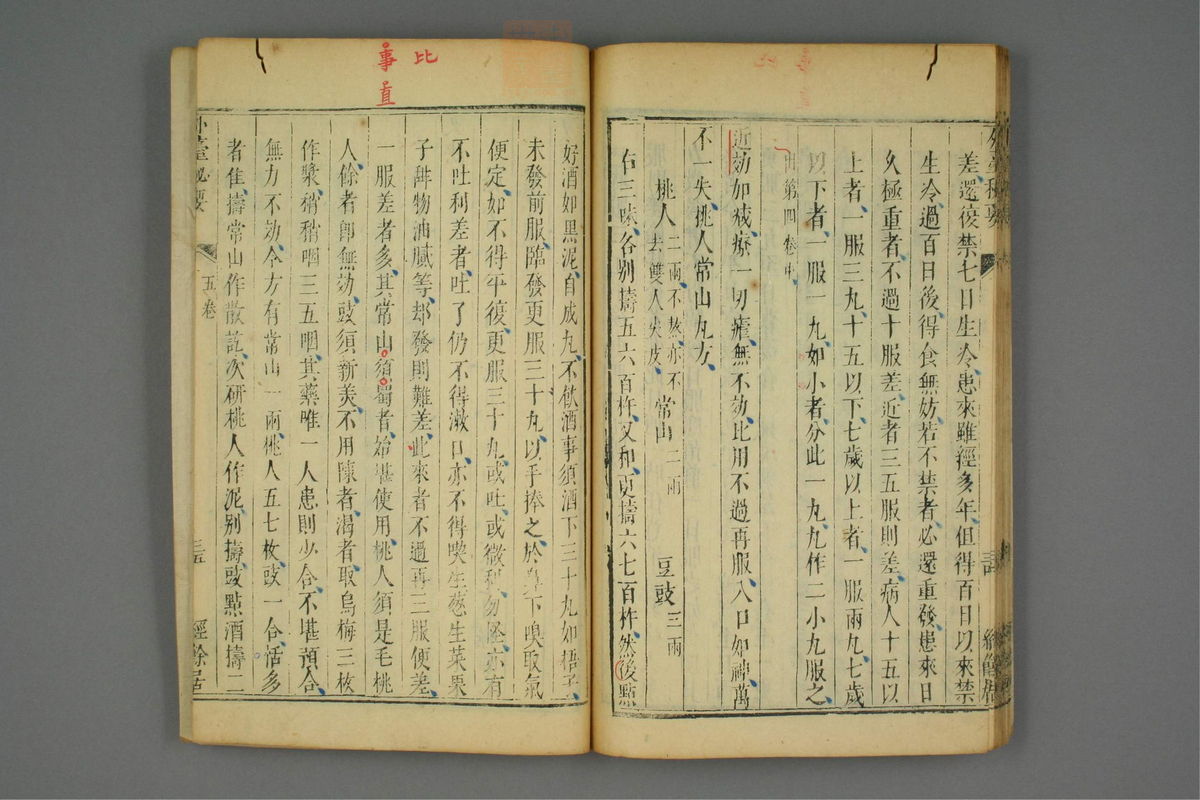 差還後禁七日生冷患來雖經多年但得百日以來禁
生冷過百日後得食無妨若不禁者必還重發患來日
久極重者不過十服差近者三五服則差病人十五以
上者一服三丸十五以下七歲以上者一服兩丸七歲
以下者一服一丸如小者分此一丸丸作二小丸服之
出第四卷中
近効加減療一切瘧無不効比用不過再服入口如神萬
不一失桃人常山丸方
桃人二兩不熬亦不去雙人尖皮 常山二兩 豆豉三兩
右三味各別擣五六百杵又和更擣六七百杵然後點
比
事
直
好酒如黑泥自成丸不飲酒事須酒下三十丸如梧子
未發前服臨發更服三十丸以手捧之於鼻下嗅取氣
便定如不得平復更服三十丸或吐或微利勿怪亦有
不吐利差者吐了仍不得漱口亦不得喫生葱生菜果
子甜物油膩等却發則難差此來者不過再三服便差
一服差者多其常山須蜀者始堪使用桃人須是毛桃
人餘者即無効豉須新美不用陳者渴者取烏梅三枚
作漿稍稍咽三五咽其藥唯一人患則少合不堪預合
無力不効今方有常山一兩桃人五七枚豉一合恬多
者隹擣常山作散訖次研桃人作泥別擣豉點酒擣二
外臺祕要
五卷
三五
經餘居